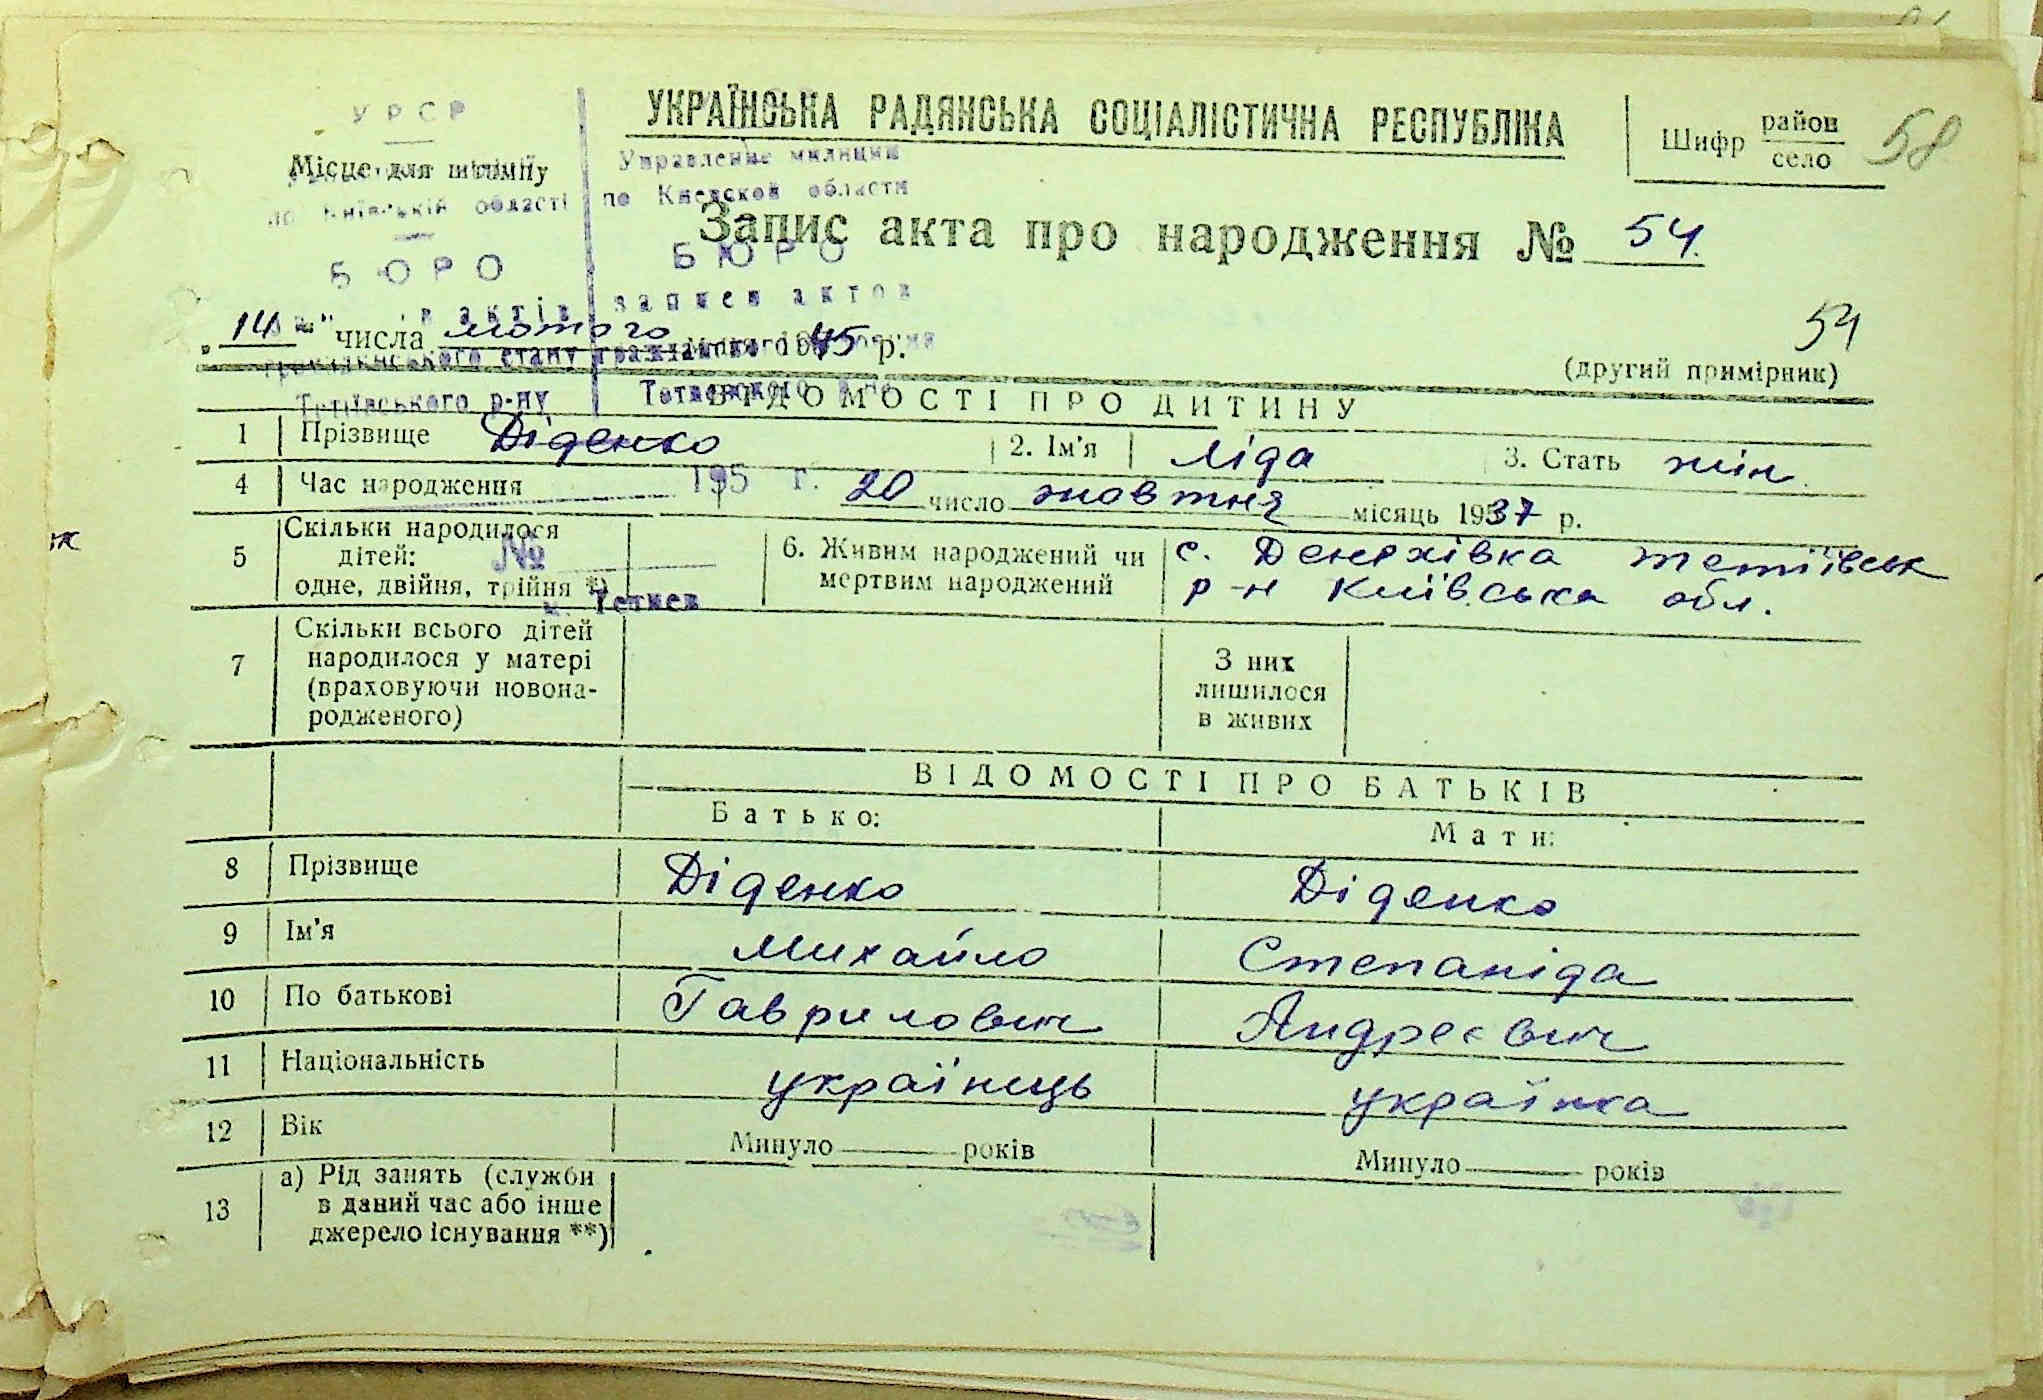 УКРАЇНСЬКА РАДЯНСЬКА СОЦІАЛІСТИЧНА РЕСПУБЛІКА
Шифр район село 58
УРСР
Місце для штампу
Управление милиции
по Київській області по Киевской области
Запис акта про народження № 54.
БЮРО БЮРО
актів записи актов
"14" числа лютого 1945 р.
54
громадянського стану гражданского
(другий примірник)
Тетіївського р-ну Тетиевского р-на
ВІДОМОСТІ ПРО ДИТИНУ
1 Прізвище Діденко 2. Ім'я Ліда 3. Стать жін.
4 Час народження 195 г. 20 число жовтня місяць 1937 р.
5 Скільки народилося дітей: одне, двійня, трійня *)
№
Тетиев
6. Живим народжений чи мертвим народжений
с. Денехівка тетіївськ
р-н Київська обл.
7 Скільки всього дітей
народилося у матері
(враховуючи новона-
родженого)
З них
лишилося
в живих
ВІДОМОСТІ ПРО БАТЬКІВ
Батько: Мати:
8 Прізвище Діденко Діденко
9 Ім'я Михайло Степаніда
10 По батькові Гаврилович Андреєвич
11 Національність українець українка
12 Вік Минуло років Минуло років
13 а) Рід занять (служби
в даний час або інше
джерело існування **)